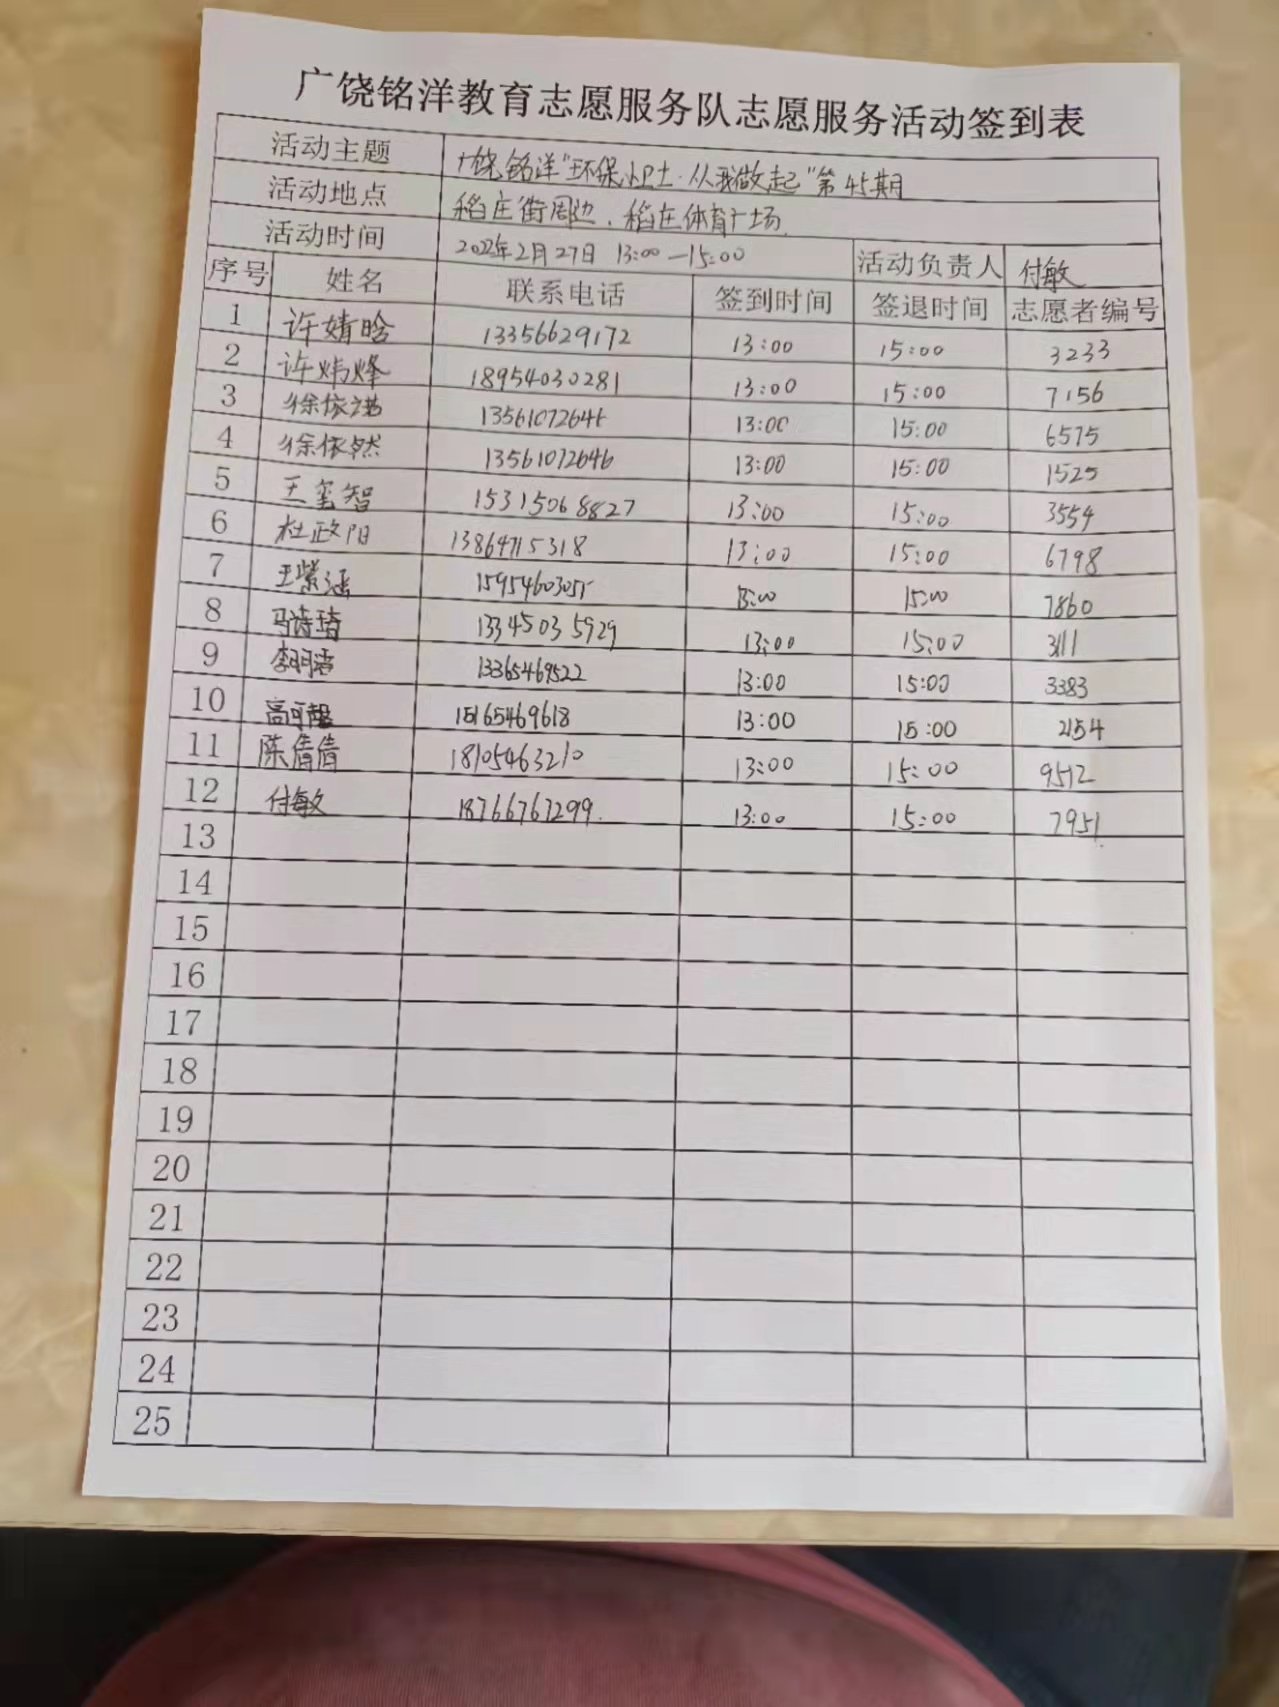 广饶铭洋教育志愿服务队志愿服务活动签到表
活动主题 广饶铭洋"环保小卫士·从我做起"第45期
活动地点 稻庄街周边、稻庄体育广场
活动时间 2022年2月27日 13:00—15:00 活动负责人 付敏
序号 姓名 联系电话 签到时间 签退时间 志愿者编号
1 许婧晗 13356629172 13:00 15:00 3233
2 许炜烽 18954030281 13:00 15:00 7156
3 徐依诺 13:00 15:00 6575
4 徐依然 13561072646 13:00 15:00 1525
5 王玺智 15315068827 13:00 15:00 3554
6 杜政阳 13864715318 13:00 15:00 6798
7 王紫涵 15954603055 13:00 15:00 7860
8 马诗琦 13345035929 13:00 15:00 3111
9 13365469522 13:00 15:00 3383
10 15165469618 13:00 15:00 2154
11 陈倩倩 18105463210 13:00 15:00 9512
12 付敏 18766767299. 13:00 15:00 7951
13
14
15
16
17
18
19
20
21
22
23
24
25